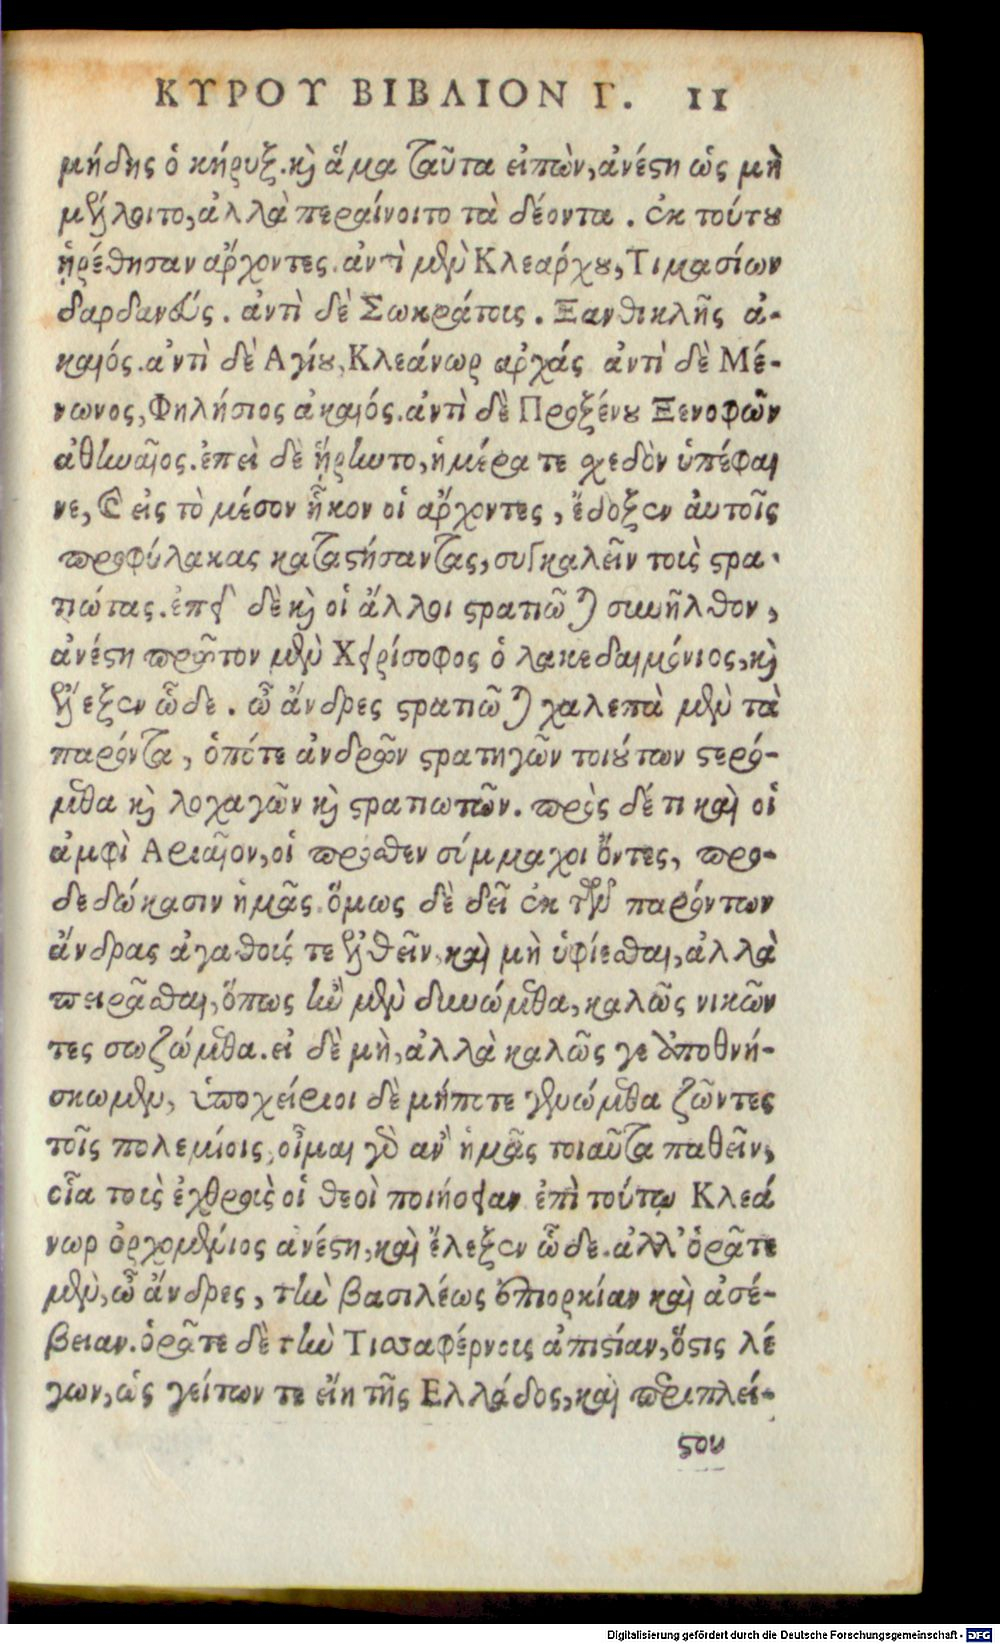 ΚΥΡΟΥ ΒΙΒΛΙΟΝ Γ. 11
μήδης ὁ κήρυξ. καὶ ἅμα ταῦτα εἰπὼν, ἀνέστη ὡς μὴ
μέλλοιτο, ἀλλὰ περαίνοιτο τὰ δέοντα. ἐκ τούτου
ᾑρέθησαν ἄρχοντες. ἀντὶ μὲν Κλεάρχου, Τιμασίων
δαρδανεύς. ἀντὶ δὲ Σωκράτους. Ξανθικλῆς ἀ-
χαιός. ἀντὶ δὲ Αγίου, Κλεάνωρ αρχάς ἀντὶ δὲ Μέ-
νωνος, Φηλήσιος ἀχαιός. ἀντὶ δὲ Προξένου Ξενοφῶν
ἀθηναῖος. ἐπεὶ δὲ ᾕρηντο, ἡμέρα τε σχεδὸν ὑπέφαι
νε, καὶ εἰς τὸ μέσον ἧκον οἱ ἄρχοντες, ἔδοξεν αὐτοῖς
προφύλακας καταστήσαντας, συγκαλεῖν τοὺς στρα-
τιώτας. ἐπεὶ δὲ καὶ οἱ ἄλλοι στρατιῶται συνῆλθον,
ἀνέστη πρῶτον μὲν Χειρίσοφος ὁ λακεδαιμόνιος, καὶ
ἔλεξεν ὧδε. ὦ ἄνδρες στρατιῶται χαλεπὰ μὲν τὰ
παρόντα, ὁπότε ἀνδρῶν στρατηγῶν τοιούτων στερό-
μεθα καὶ λοχαγῶν καὶ στρατιωτῶν. πρὸς δέ τι καὶ οἱ
ἀμφὶ Αριαῖον, οἱ πρόσθεν σύμμαχοι ὄντες, προ-
δεδώκασιν ἡμᾶς. ὅμως δὲ δεῖ ἐκ τῶν παρόντων
ἄνδρας ἀγαθούς τε ἐλθεῖν, καὶ μὴ ὑφίεσθαι, ἀλλὰ
πειρᾶσθαι, ὅπως ἢν μὲν δυνώμεθα, καλῶς νικῶν
τες σωζώμεθα. εἰ δὲ μὴ, ἀλλὰ καλῶς γε ἀποθνή-
σκωμεν, ὑποχείριοι δὲ μήποτε γενώμεθα ζῶντες
τοῖς πολεμίοις, οἶμαι γὰρ ἂν ἡμᾶς τοιαῦτα παθεῖν,
οἷα τοὺς ἐχθροὺς οἱ θεοὶ ποιήσειαν ἐπὶ τούτῳ Κλεά
νωρ ὀρχομένιος ἀνέστη, καὶ ἔλεξεν ὧδε. ἀλλ' ὁρᾶτε
μὲν, ὦ ἄνδρες, τὴν βασιλέως ἐπιορκίαν καὶ ἀσέ-
βειαν. ὁρᾶτε δὲ τὴν Τισσαφέρνους ἀπιστίαν, ὅστις λέ
γων, ὡς γείτων τε εἴη τῆς Ελλάδος, καὶ περιπλεί-
στου
Digitalisierung gefördert durch die Deutsche Forschungsgemeinschaft - DFG